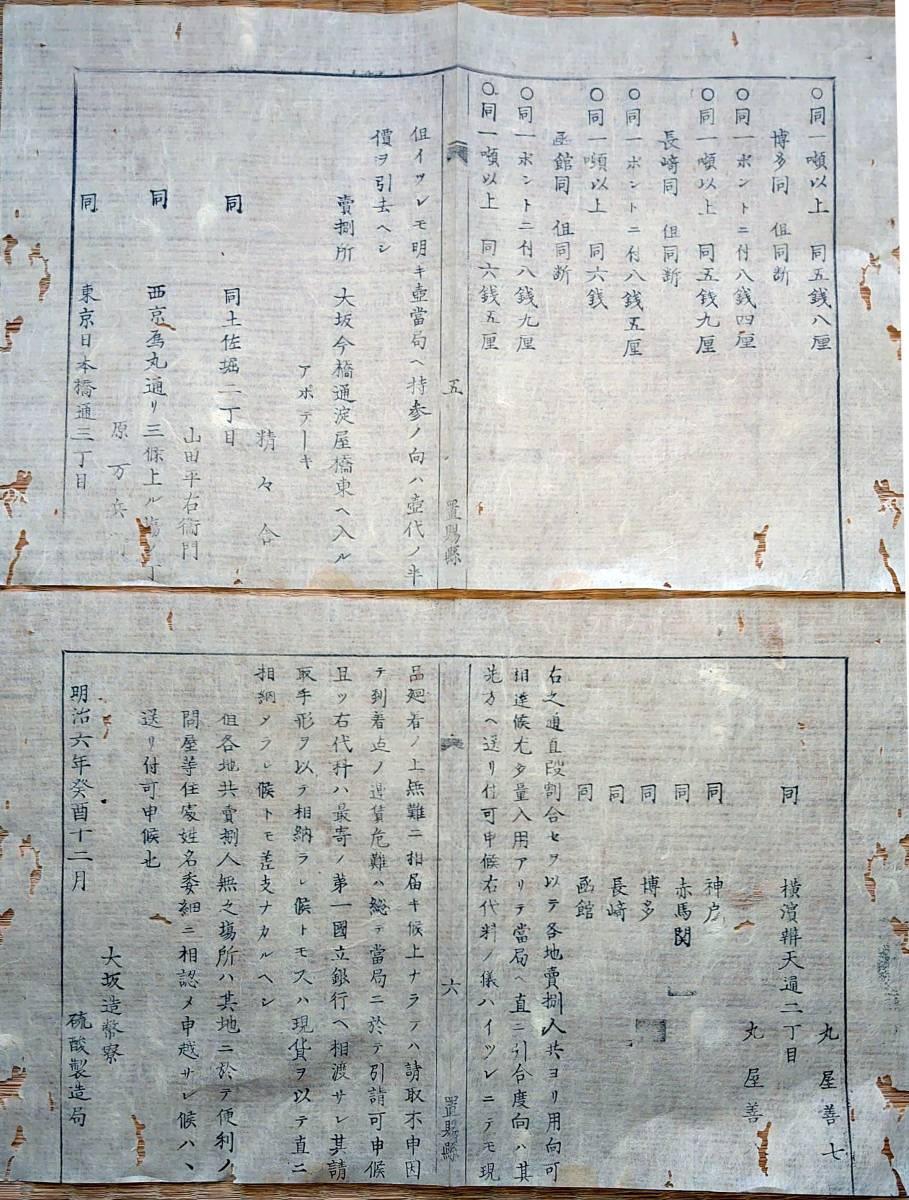 〇同一噸以上　同五銭八厘
博多同　但同断
〇同一ポントニ付八銭四厘
〇同一噸以上　同五銭九厘
長﨑同　但同断
〇同一ポントニ付八銭五厘
〇同一噸以上　同六銭
函館同　但同断
〇同一ポントニ付八銭九厘
〇同一噸以上　同六銭五厘
五　置賜縣
但イツレモ明キ壺當局ヘ持参ノ向ハ壺代ノ半
價ヲ引去ヘシ
賣捌所　大坂今橋通淀屋橋東ヘ入ル
アポテーキ
精々合
同　同土佐堀二丁目
山田平右衛門
同　西京烏丸通リ三條上ル場ノ丁
原万兵
同　東京日本橋通三丁目
丸屋善七
同　横濱辨天通二丁目
丸屋善
同　神戸
同　赤馬関
同　博多
同　長﨑
同　函館
右之通直段割合セヲ以テ各地賣捌人共ヨリ用向可
相達候尤多量入用アリテ當局ヘ直ニ引合度向ハ其
先方ヘ送リ付可申候右代料ノ儀ハイツレニテモ現
六　置賜縣
品廻着ノ上無難ニ相届キ候上ナラテハ請取不申因
テ到着迠ノ運賃危難ハ総テ當局ニ於テ引請可申候
且ツ右代料ハ最寄ノ第一國立銀行ヘ相渡サレ其請
取手形ヲ以テ相納ラレ候トモ又ハ現貨ヲ以テ直ニ
相納メラレ候トモ差支ナカルヘシ
但各地共賣捌人無之場所ハ其地ニ於テ便利ノ
問屋等住處姓名委細ニ相認メ申越サレ候ハヽ
送リ付可申候也
明治六年癸酉十二月
大坂造幣寮
硫酸製造局